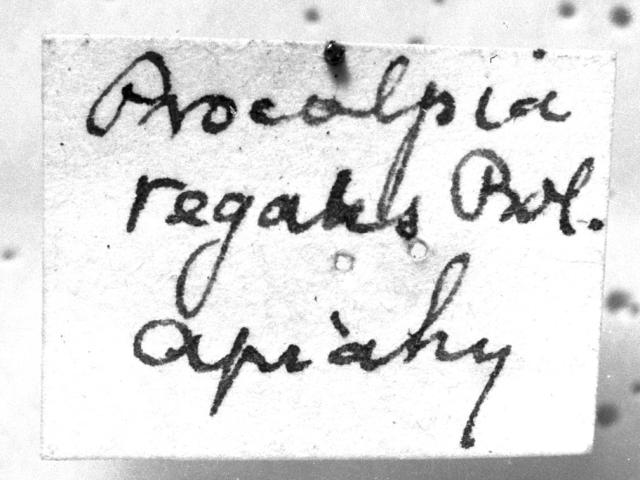 Procolpia
regalis Bol.
apiahy